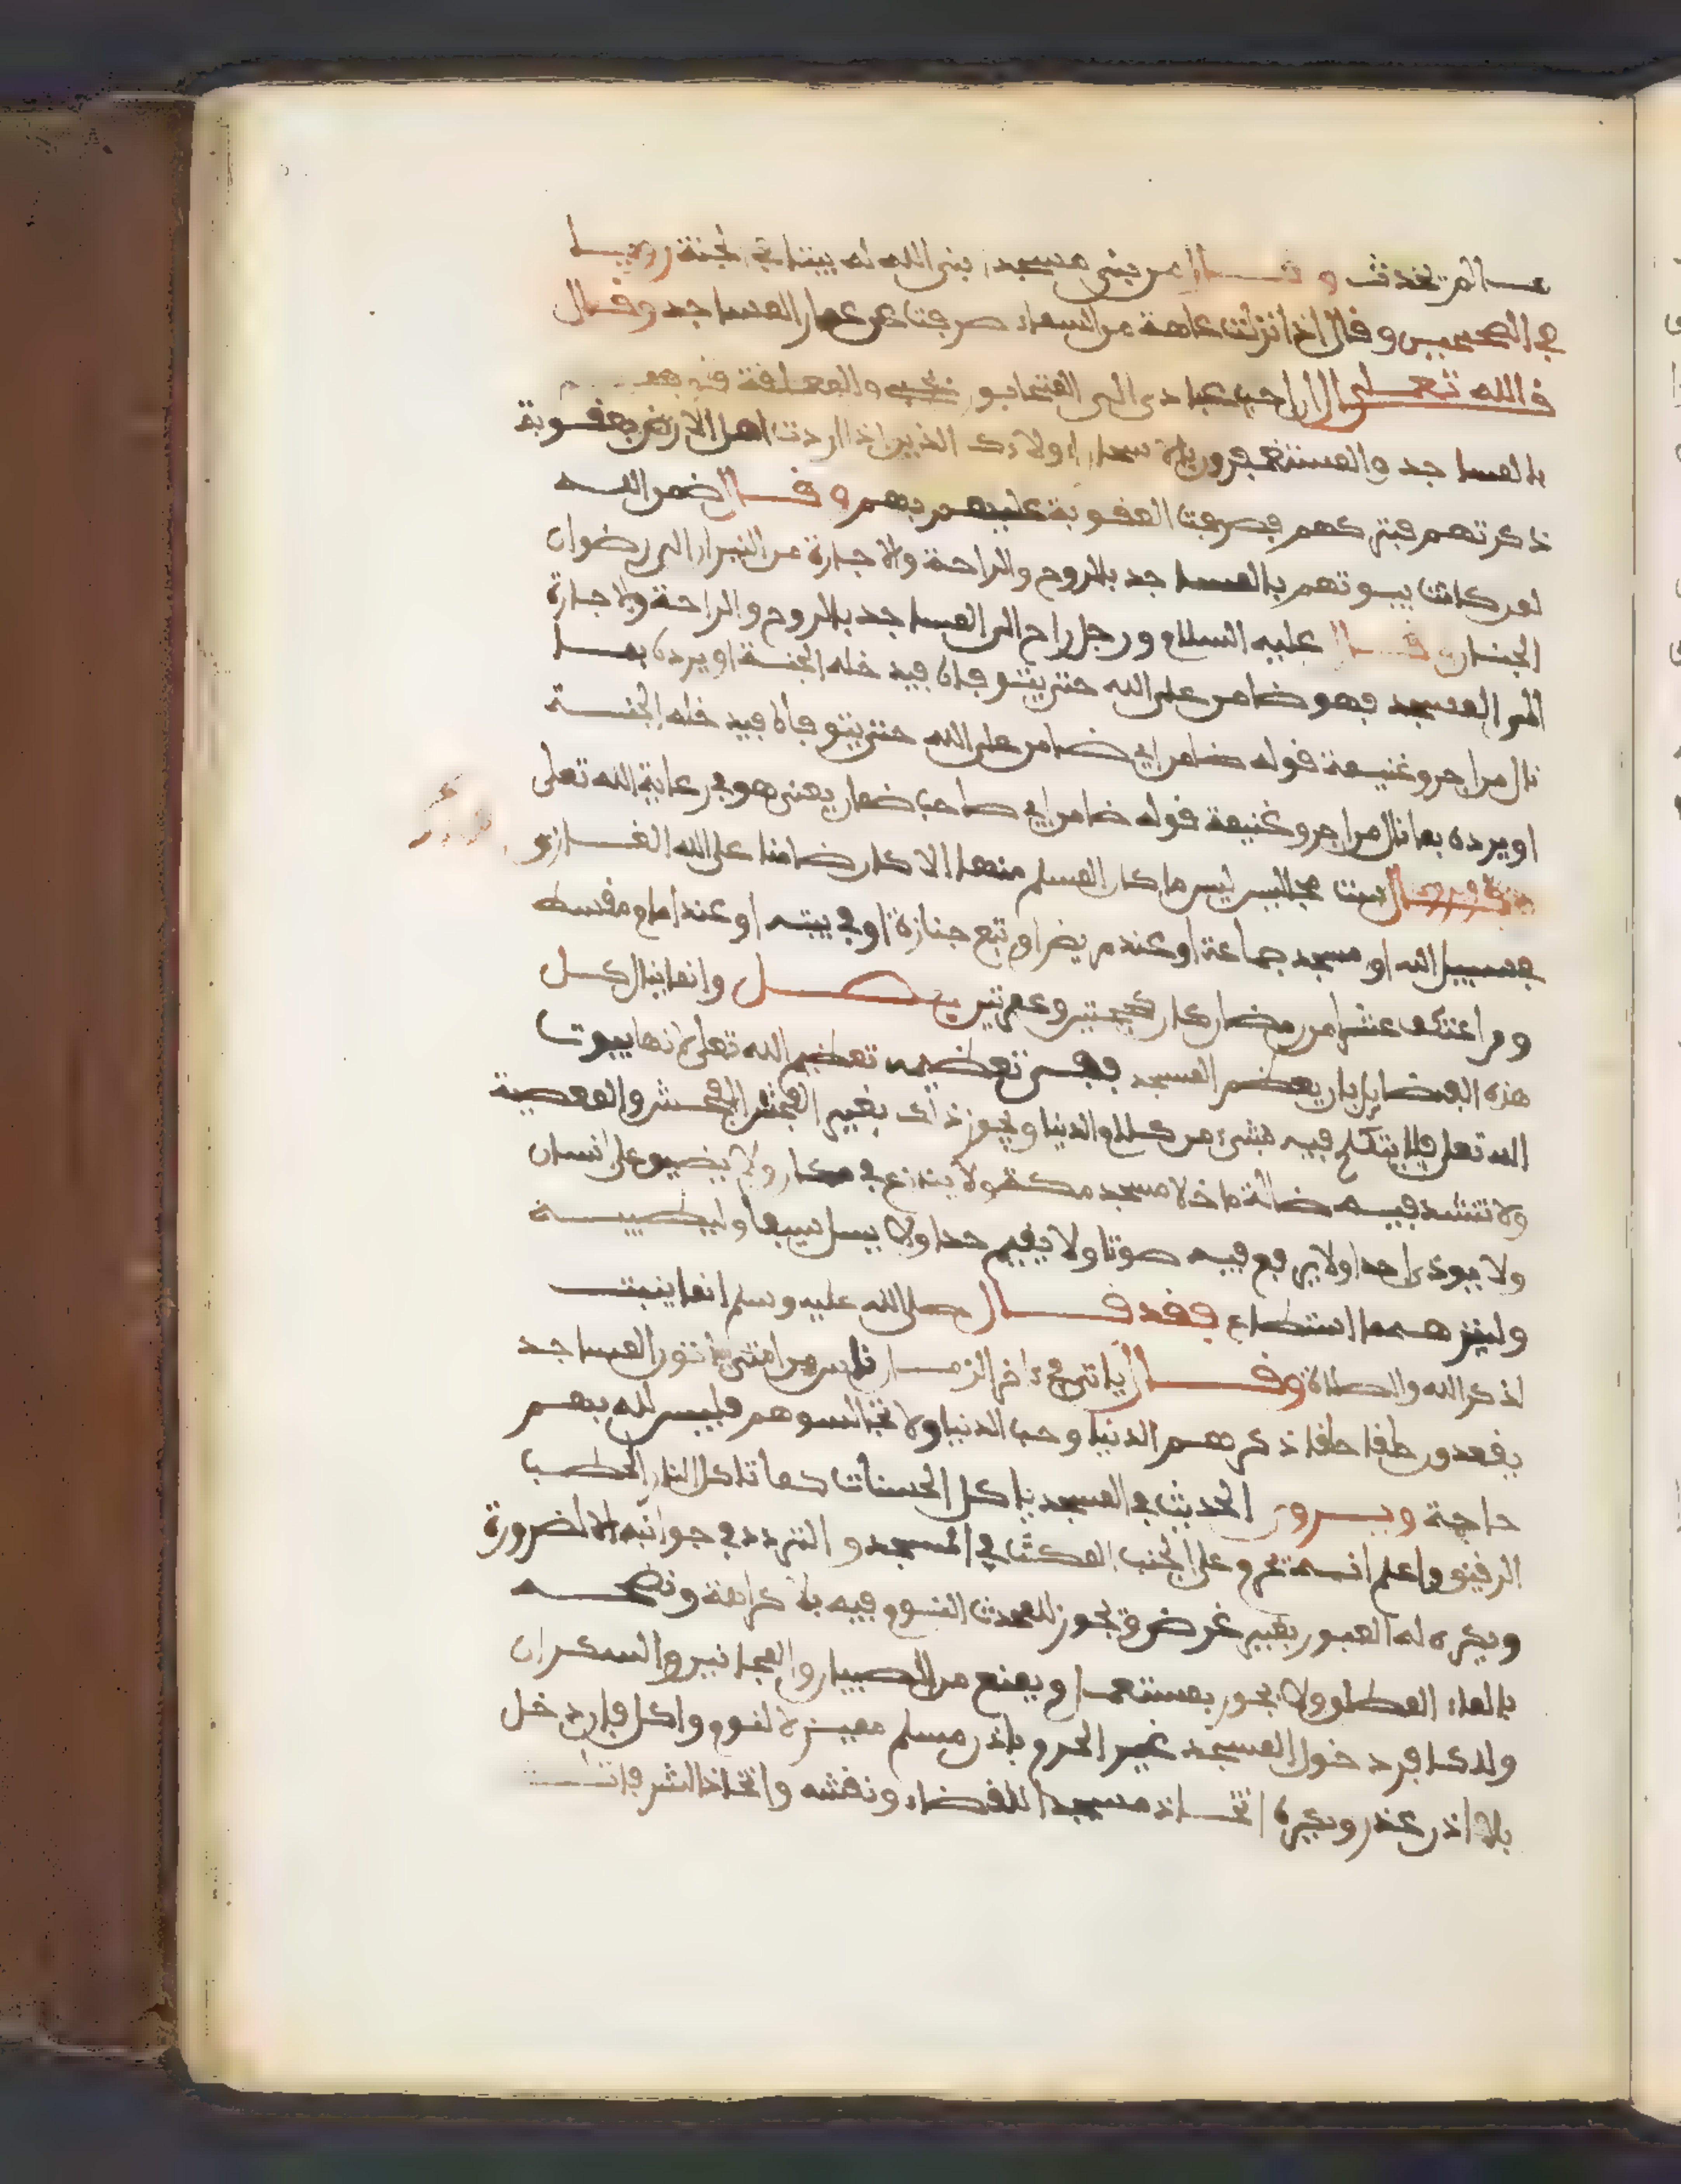 مالم تحدث وقال من بنى مسجدا بنى الله له بيتا في الجنة روينا
في الصحيحين وقال اذا نزلت عاهة من السماء صرفت عن عمار المساجد وقال
قال الله تعلى ان احب عبادي الي المتحابون في والمعلقة قلوبهم
بالمساجد والمستغفرون بالاسحار اولائك الذين اذا اردت اهل الارض بعقوبة
ذكرتهم فتركتهم فصرفت العقوبة عليهم بهم وقال ضمن الله
لمن كانت بيوتهم بالمساجد بالروح والراحة والاجازة من النيران الى رضوان
الجنان وقال عليه السلام ورجل راح الى المساجد بالروح والراحة والاجازة
الى المسجد فهو ضامن على الله حتى يتوفاه فيدخله الجنة او يرده بما
نال من اجر وغنيمة قوله ضامن اي ضامن على الله حتى يتوفاه فيدخله الجنة
او يرده بما نال من اجر وغنيمة قوله ضامن اي صاحب ضمان يعني هو في رعاية الله تعلى
وقال ست مجالس ليس ما كان المسلم منها الا كان ضامنا على الله الغازي
في سبيل الله او مسجد جماعة او عند مريض او تبع جنازة او في بيته او عند امام مقسط
ومن اعتكف عشرا من رمضان كان كحجتين وعمرتين فصل وانما ينال كل
هذه الفضايل بان يعظم المسجد فمن تعظيمه تعظيم الله تعلى لانها بيوت
الله تعلى فلا يتكلم فيه بشيء من كلام الدنيا ويجوز ذلك بغير الفحش الفحش والمعصية
ولا تنشد فيه ضالة ما خلا مسجد مكة ولا يتنازع في مكان ولا يضيق على انسان
ولا يوذي احدا ولا يرفع فيه صوتا ولا يقيم حدا ولا يسل سيفا وليطيبه
ولينزهه مااستطاع فقد قال صلى الله عليه وسلم انما بنيت
لذكر الله والصلاة وقال ياتي في ءاخر الزمان ناس من امتي ياتون المساجد
يقعدون حلقا حلقا ذكرهم الدنيا وحب الدنيا ولا تجالسوهم فليس لله بهم
حاجة ويروى الحديث في المسجد ياكل الحسنات كما تاكل النار الحطب
الرقيق واعلم انه تحرم على الجنب المكث في المسجد والتردد في جوانبه الا لضرورة
ويكره له العبور بغير غرض وتجوز للمحدث النوم فيه بلا كراهة ونضحه
بالماء المطلق ولا يجوز بمستعمل ويمنع من الصبيان والمجانين والسكران
ولكافر دخول المسجد غير الحرم باذن مسلم مميز لا لنوم واكل فان دخل
بلا اذن عذر ويكره اتخاذ مسجدا للقضاء ونقشه واتخاذ الشرفات